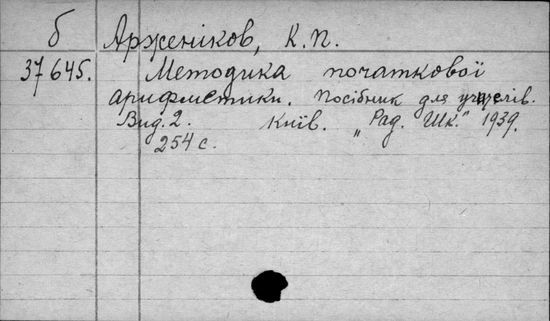 б Арженіков, К.П.
37645. Методика початкової
арифметики. Посібник для учителів.
Вид. 2. Київ. „Рад. Шк." 1939.
254 с.